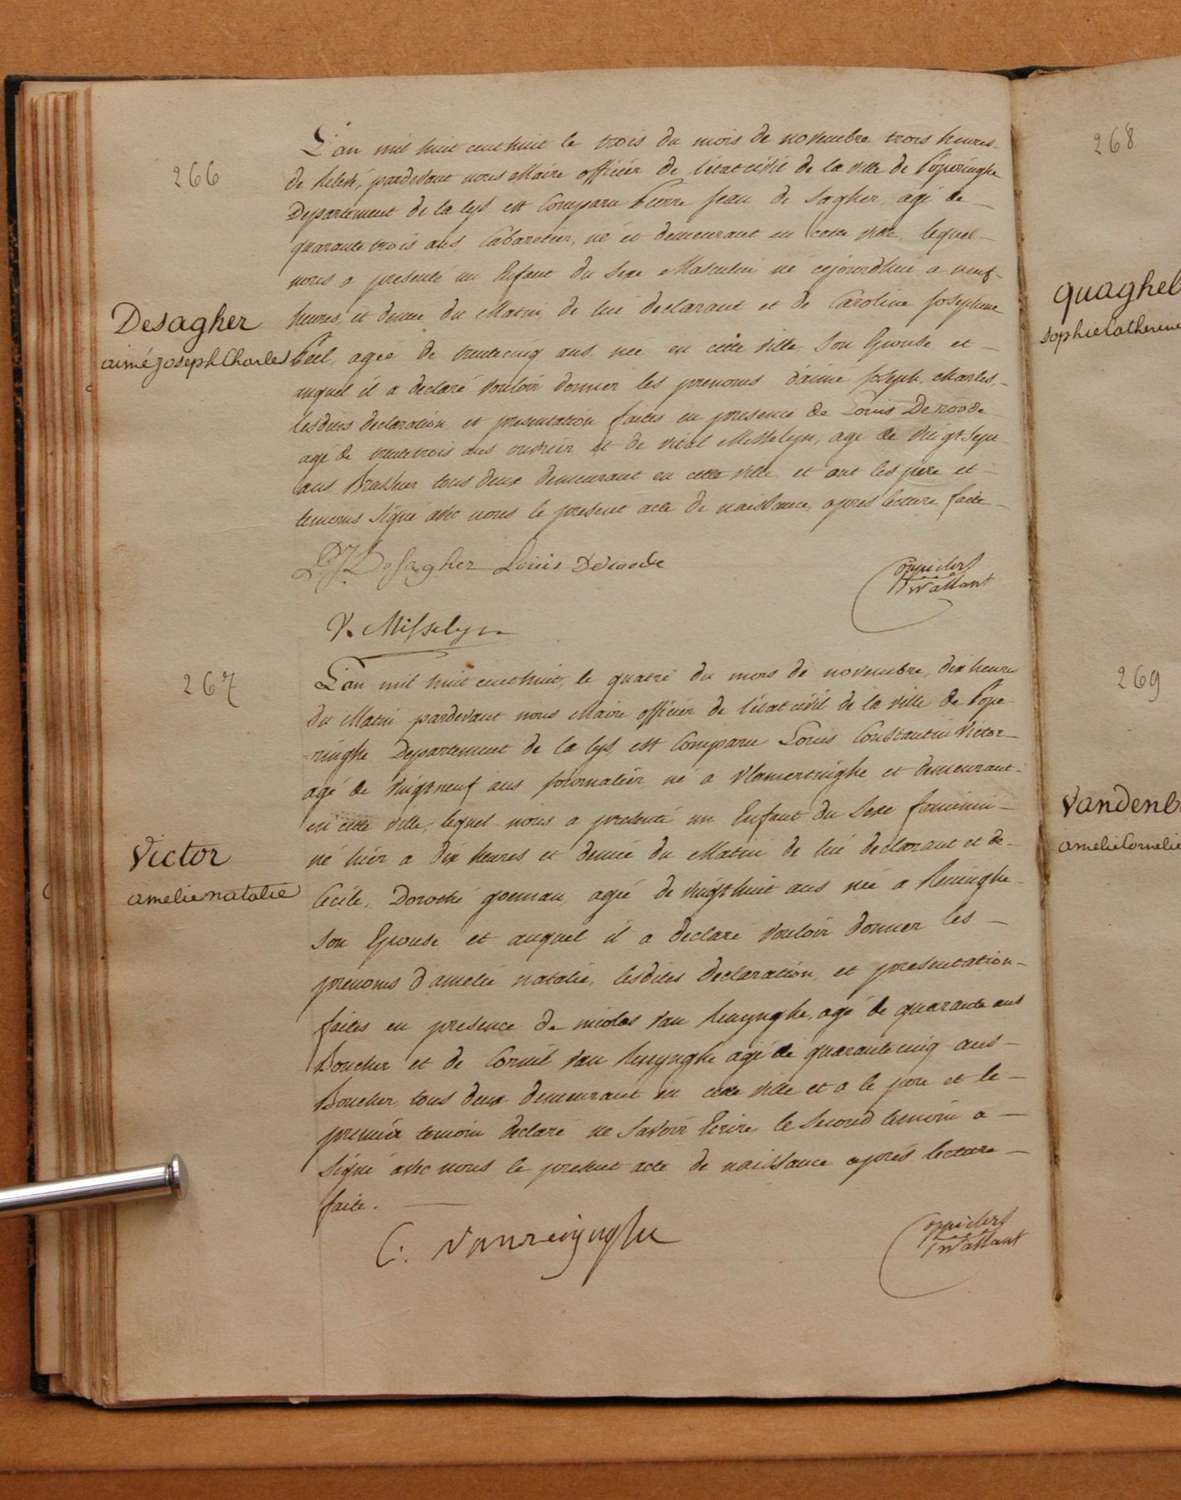 266
Desagher
aimé Joseph Charles
L'an mil huit cent huit le trois du mois de novembre trois heures
de relevé, pardevant nous Maire officier de l'état civil de la ville de Poperinghe
Departement de la lys est Comparu Pierre Jean de Sagher, agé de
quarante trois ans Cabaretier, né et demeurant en cette ville, lequel
nous a presenté un Enfant du Sexe Masculin né cejourdhui a neuf
heures, et demie du Matin de lui declarant et de Caroline Josephine
agée de trente cinq ans née en cette ville Son Epouse et
auquel il a declaré vouloir donner les prenoms d'aimé Joseph, Charles,
lesdites declaration et presentation faites en presence de Louis Denoode
agé de trente trois ans ouvrier et de vital Misselyn, agé de vingt Sept
ans Brasseur tous deux demeurant en cette ville, et ont les pere et
temoins Signé avec nous le present acte de naissance, après lecture faite
P. J. DeSagher Louis Denoode
V. Misselyn
267
Victor
amelie natalie
L'an mil huit cent huit, le quatre du mois de novembre, dix heures
du Matin pardevant nous Maire officier de l'état civil de la ville de Pope
ringhe Departement de la lys est Comparu Louis Constantin Victor
agé de vingt neuf ans journalier né a Vlamertinghe et demeurant
en cette ville, lequel nous a presenté un Enfant du Sexe feminin
né hier a dix heures et demie du Matin de lui declarant et de
Cécile, Dorothé agée de vingt huit ans née a Reninghe
Son Epouse et auquel il a declaré vouloir donner les
prenoms d'amelie natalie, lesdites declaration et presentation
faites en presence de nicolas van Renynghe, agé de quarante ans
Boucher et de Corneil van Renynghe agé de quarante cinq ans
Boucher, tous deux demeurant en cette ville et a le pere et le
premier temoin declaré ne Savoir Ecrire, le Second temoin a
Signé avec nous le present acte de naissance après lecture
faite.
C. Vanrenynghe
268
quaghel
sophie Catherine
269
Vandenb
amelie Cornelie